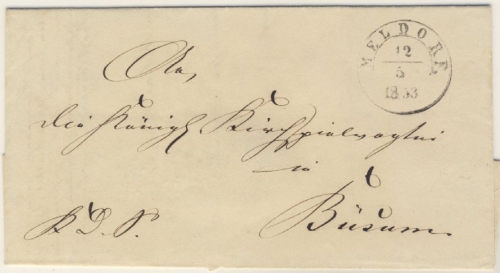 MELDORF.
12
5
1853
An,
die Königl Kirchspielvogtei
in
Büsum
K. D. S.